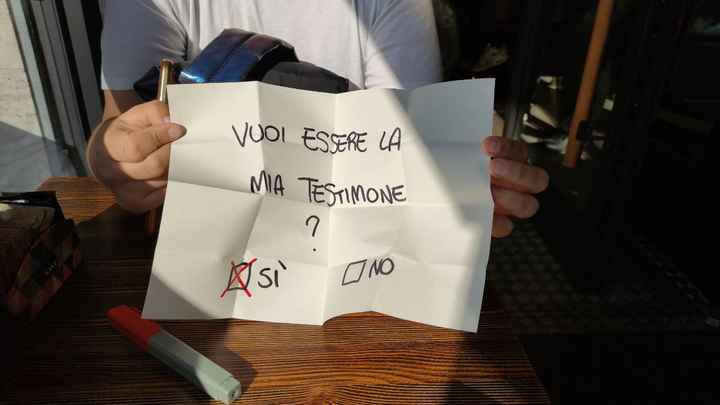 VUOI ESSERE LA
MIA TESTIMONE
?
SÌ NO